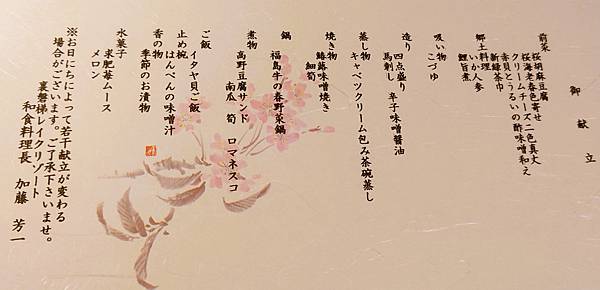 御献立
前菜
桜胡麻豆腐
桜海老春色寄せ
クリームチーズ二色真丈
赤貝とうるいの酢味噌和え
新緑茶巾
郷土料理
いか人参
鯉旨煮
吸い物
こづゆ
造り
四点盛り
馬刺し 辛子味噌醤油
蒸し物
キャベツクリーム包み茶碗蒸し
焼き物
鰆蕗味噌焼き
細筍
鍋
福島牛の春野菜鍋
煮物
高野豆腐サンド
南瓜 筍 ロマネスコ
ご飯
イタヤ貝ご飯
止め椀
はんぺんの味噌汁
香の物
季節のお漬物
水菓子
求肥苺ムース
メロン
※お日にちによって若干献立が変わる
場合がございます。ご了承下さいませ。
裏磐梯レイクリゾート
和食料理長 加藤 芳一